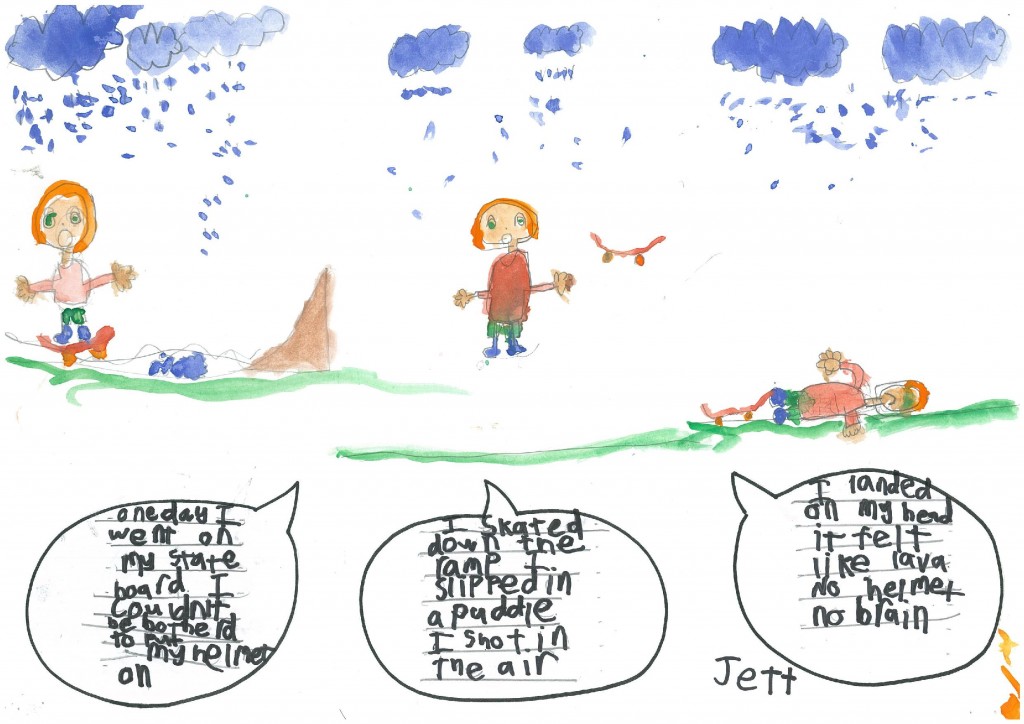 one day I
went on
my skate
board I
couldn't
be botherd
to put
my helmet
on
I skated
down the
ramp I
slipped in
a puddle
I shot in
the air
I landed
on my head
it felt
like lava
No helmet
no brain
Jett